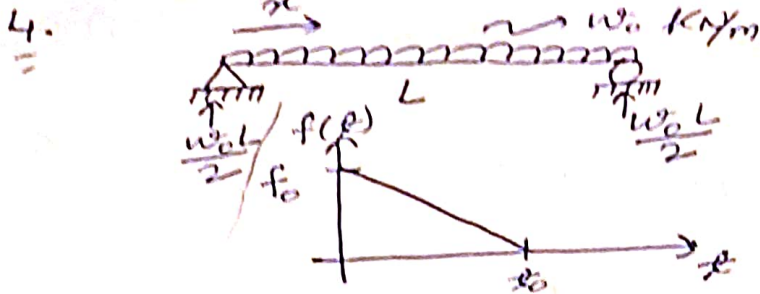 4.
x
w₀ KN/m
L
w₀L/2
w₀L/2
f(x)
f₀
x₀
x